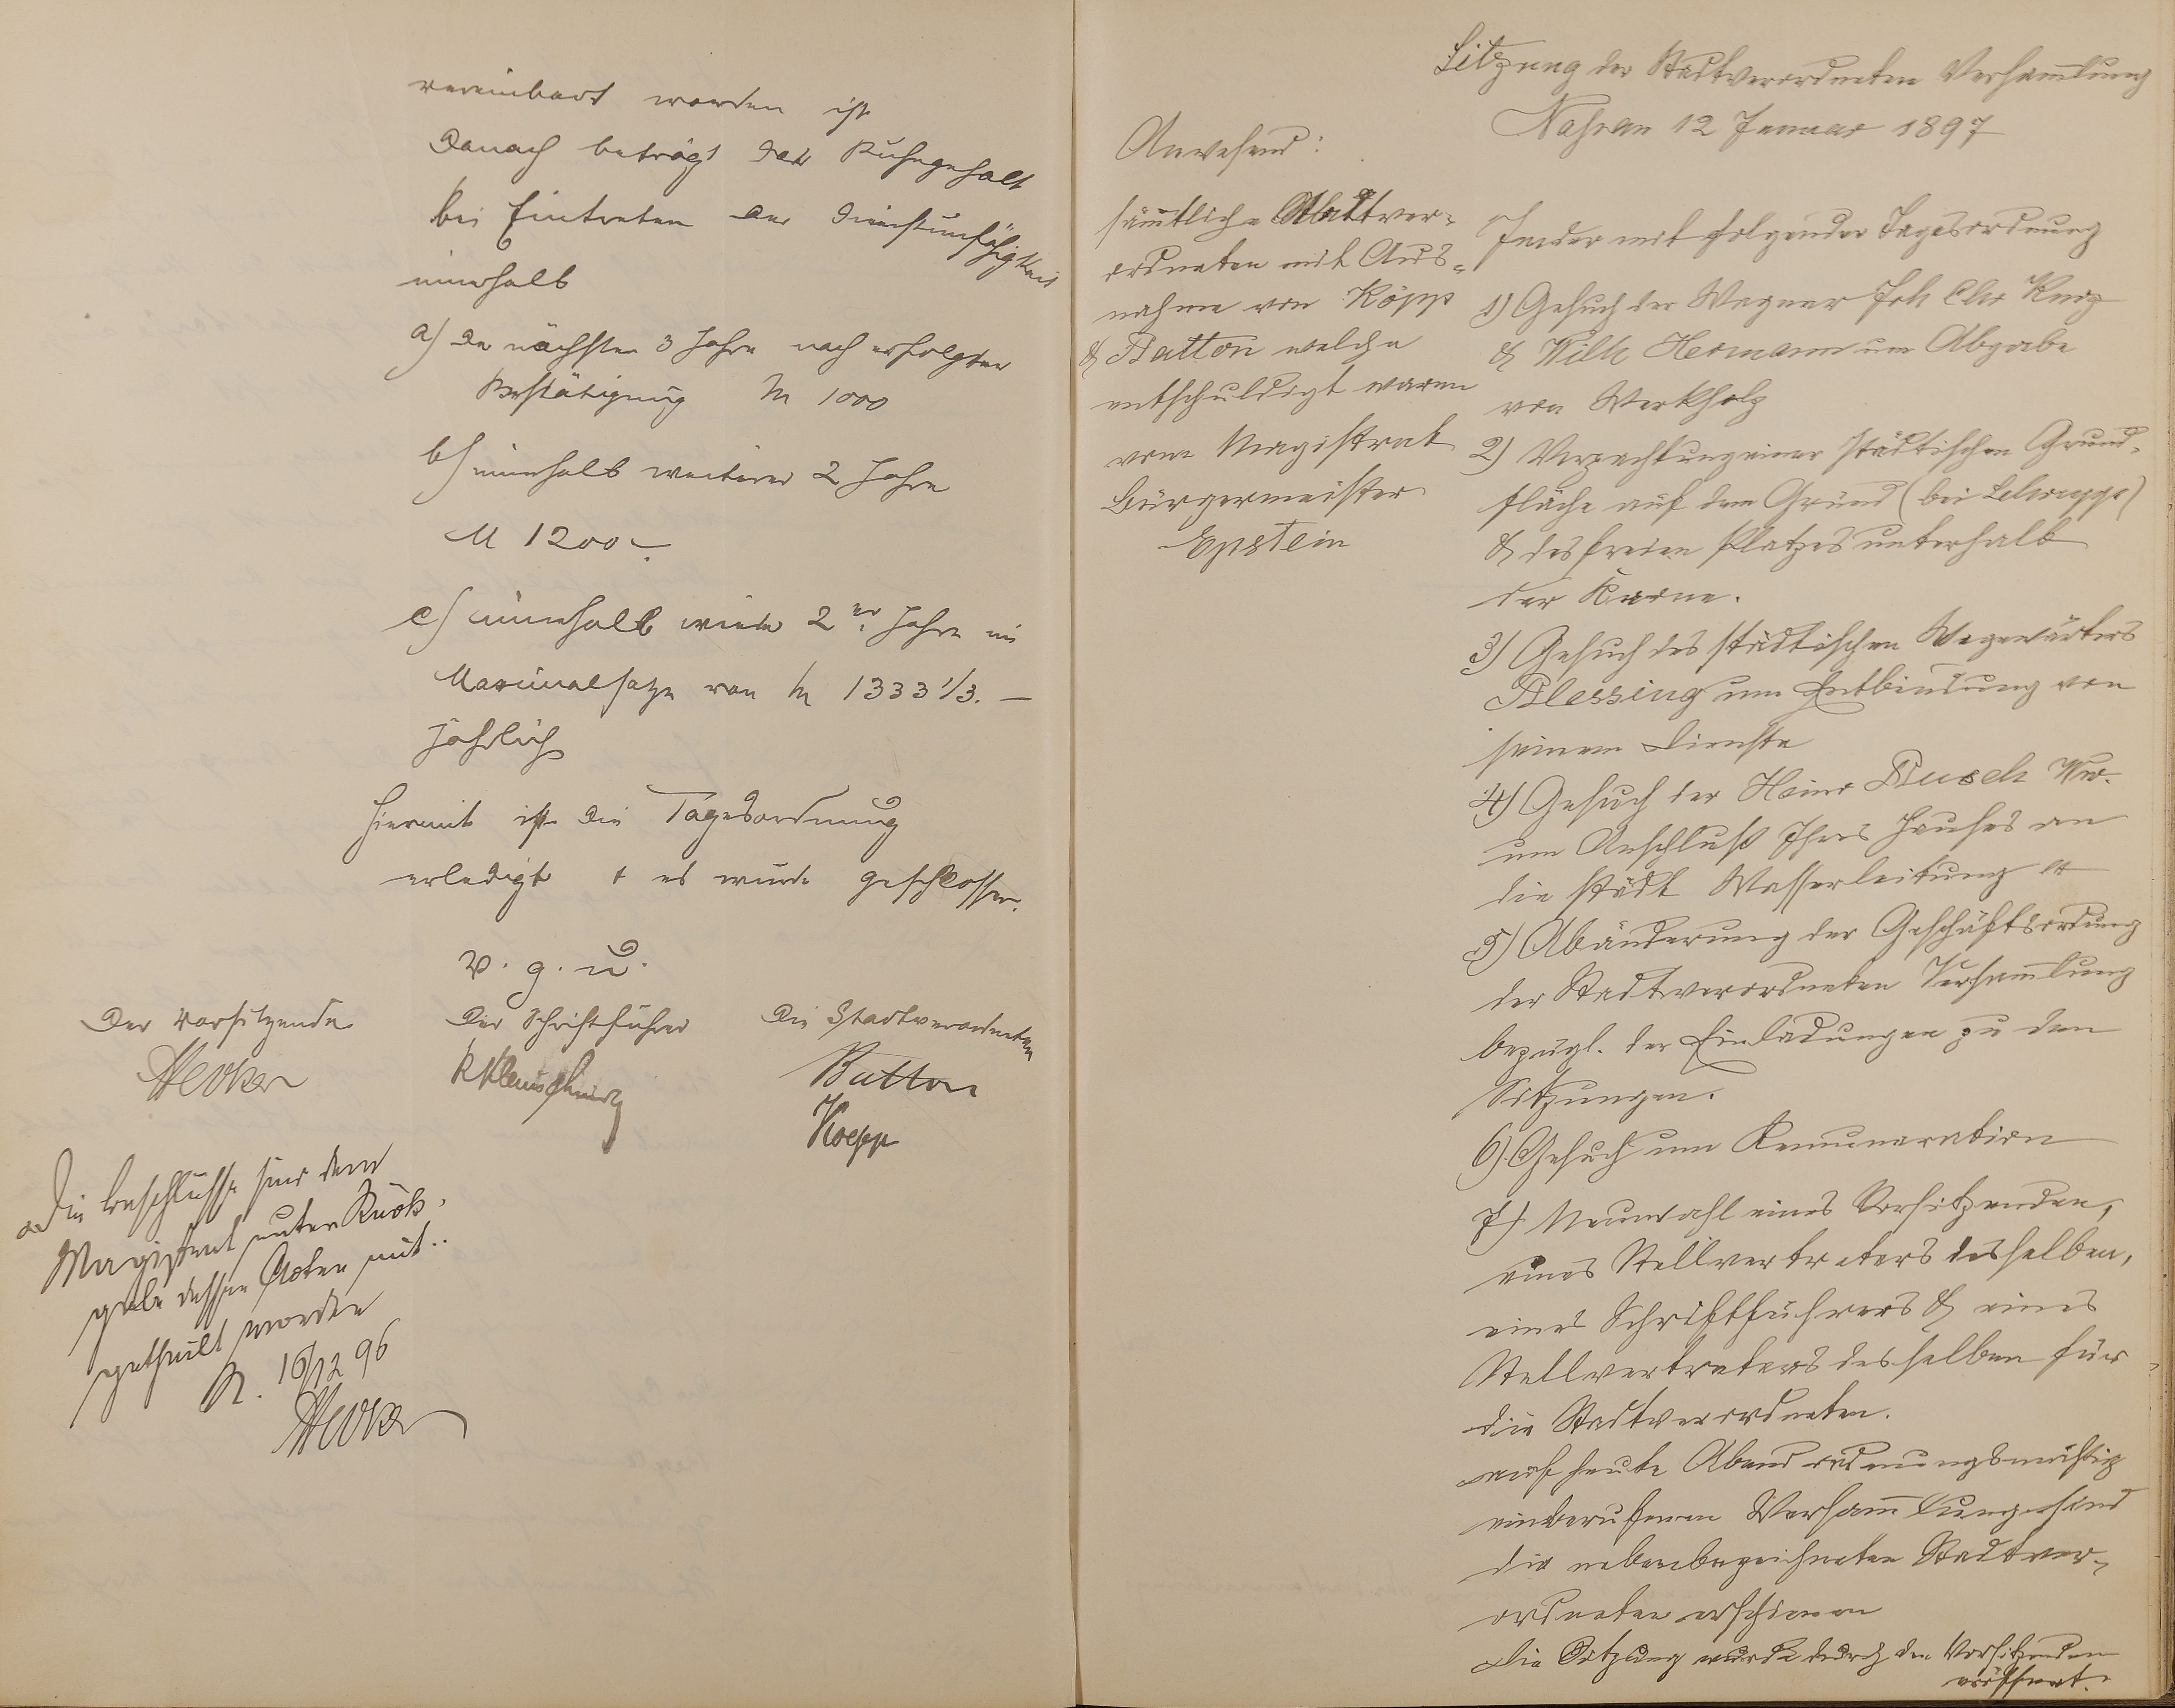 vereinbart worden ist
Danach beträgt das Ruhegehalt
bei Eintreten der Dienstunfähigkeit
innerhalb
a) der nächsten 3 Jahre nach erfolgter
Bestätigung M 1000
b) innerhalb weiterer 2 Jahre
M 1200 –
c) innerhalb weiter 2er Jahre im
Maximalsatze von M 1333 1/3. –
jährlich
Hiermit ist die Tagesordnung
erledigt + es wurde geschlossen.
v. g. u.
Der Vorsitzende
Der Schriftführer
Die Stadtverordneten
Batton
Koepp
Die Beschlüsse sind dem
Magistrat unter Rück-
gabe dessen Acten mit-
getheilt worden
N. 10/12 96
Sitzung der Stadtverordneten Versam̄lung
12 Januar 1897
Anwesend:
säm̄tliche Stadtver-
ordneten mit Aus-
nahme von Köpp
& Batton welche
entschuldigt waren
vom Magistrat
Bürgermeister
Epstein
In der mit folgender Tagesordnung
1) Gesuch der Wagner Joh Chr Kurz
& Wilh Hermann um Abgabe
von Werkholz
2) Verpachtung einer städtischen Grund-
fläche auf dem Gründ (bei Schrupp)
& des freien Platzes unterhalb
der
3) Gesuch des städtischen Wegewärters
Blessing um Entbindung von
seinem Dienste
4) Gesuch der Heinr Busch Ww.
um Anschluß Ihres Hauses an
die städt Wasserleitung
5) Abänderung der Geschäftsordnung
der Stadtverordneten Versam̄lung
bezügl. der Einladungen zu den
Sitzungen.
6) Gesuch um Remuneration
7) Neuwahl eines Vorsitzenden,
eines Stellvertreters desselben,
eines Schriftführers & eines
Stellvertreters desselben für
die Stadtverordneten.
auf heute Abend ordnungsmäßig
einberufenen Versam̄lung sind
die nebenbezeichneten Stadtver-
ordneten erschienen
Die Sitzung wurde durch den Vorsitzenden
eröffnet.